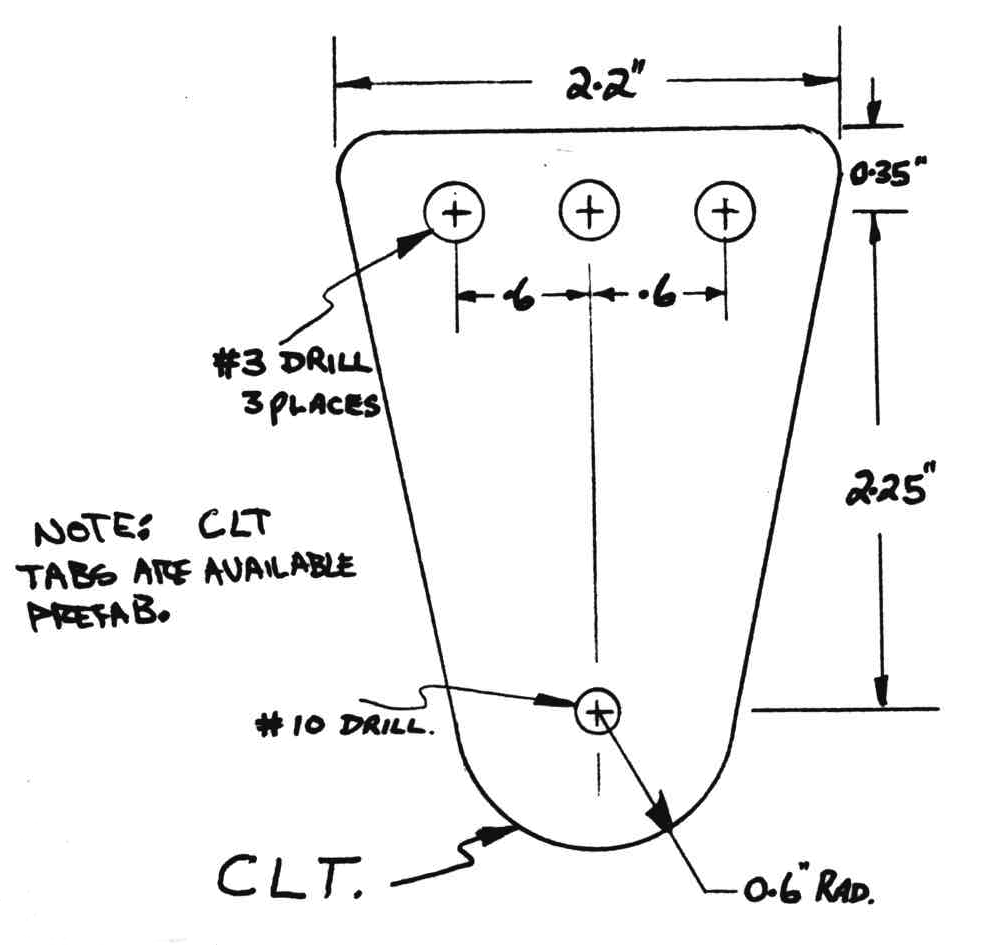 2.2"
0.35"
.6
.6
#3 DRILL
3 PLACES
2.25"
NOTE: CLT
TABS ARE AVAILABLE
PREFAB.
#10 DRILL.
CLT.
0.6" RAD.